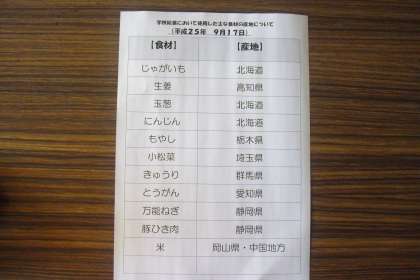 学校給食において使用した主な食材の産地について
［平成２５年　９月１７日］
【食材】 【産地】
じゃがいも 北海道
生姜 高知県
玉葱 北海道
にんじん 北海道
もやし 栃木県
小松菜 埼玉県
きゅうり 群馬県
とうがん 愛知県
万能ねぎ 静岡県
豚ひき肉 静岡県
米 岡山県・中国地方